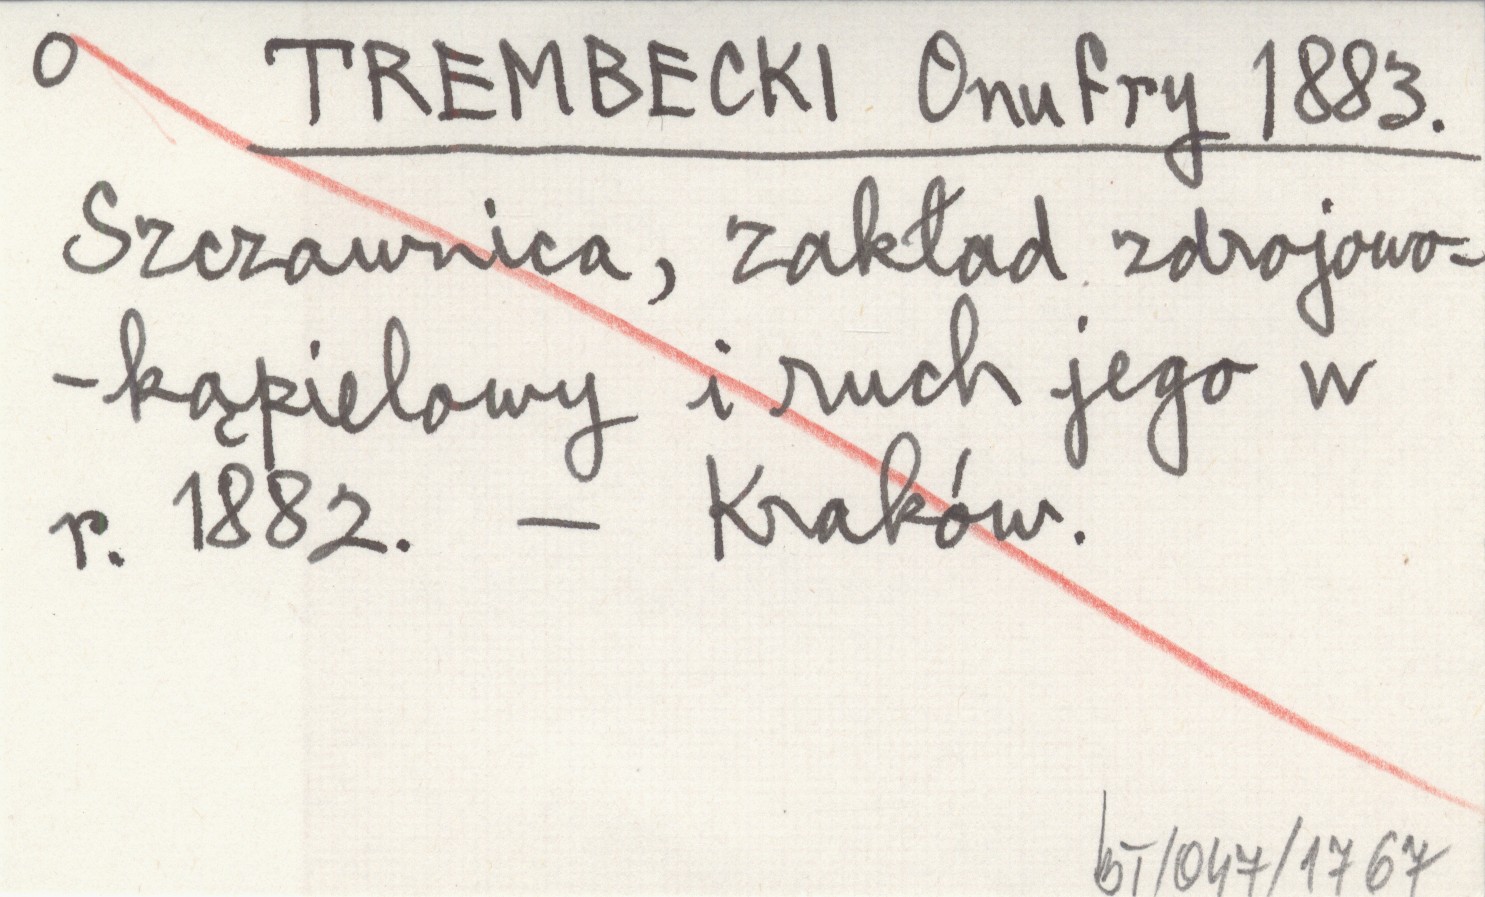 O TREMBECKI Onufry 1883.
Szczawnica, zakład zdrojowo-
-kąpielowy i ruch jego w
r. 1882. — Kraków.
bT/047/1767